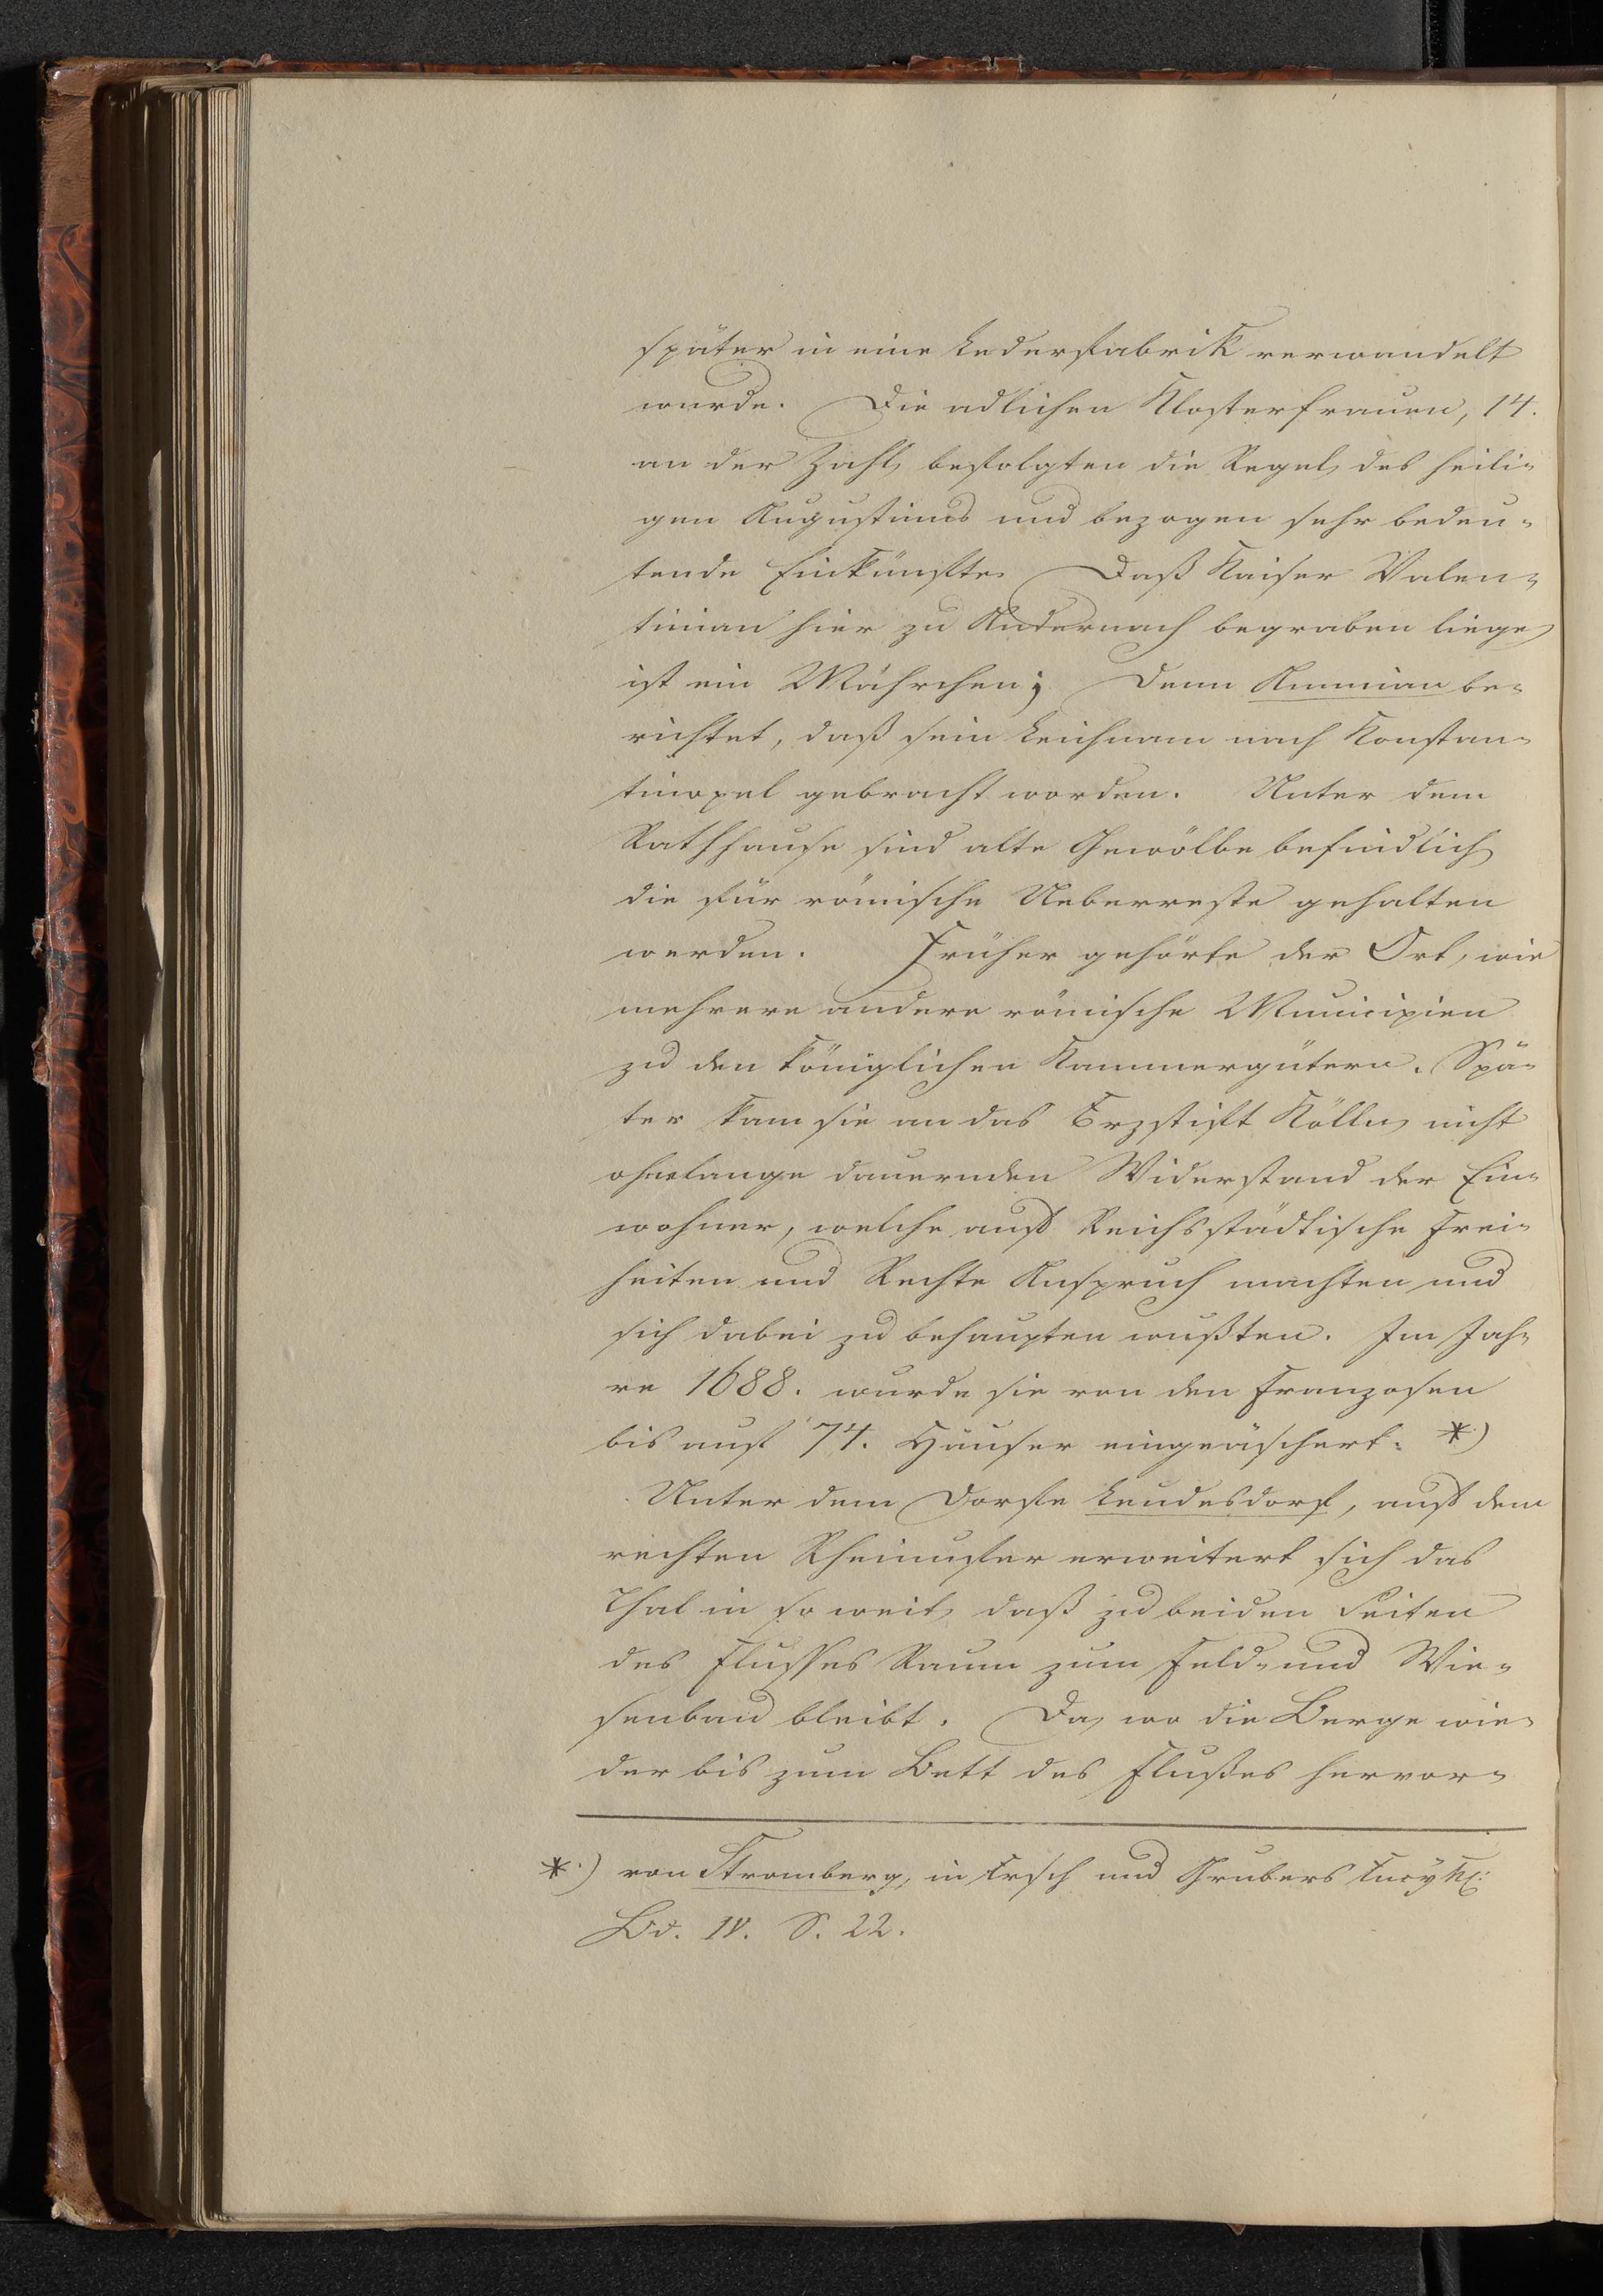 später in eine Lederfabrik verwandelt
wurde. Die adlichen Klosterfrauen, 14.
an der Zahl, befolgten die Regel des heili-
gen Augustinus und bezogen sehr bedeu-
tende Einkünfte. Daß Kaiser Valen-
tinian hier zu Andernach begraben liege,
ist ein Mährchen; denn Ammian be-
richtet, daß sein Leichnam nach Konstan-
tinopel gebracht worden. Unter dem
Rathhause sind alte Gewölbe befindlich,
die für römische Ueberreste gehalten
werden. Früher gehörte der Ort, wie
mehrere andere römische Municipien
zu den königlichen Kammergütern. Spä-
ter kam sie an das Erzstift Kölln, nicht
ohne lange dauernden Widerstand der Ein-
wohner, welche auf Reichsstädtische Frei-
heiten und Rechte Anspruch machten und
sich dabei zu behaupten wußten. Im Jah-
re 1688. wurde sie von den Franzosen
bis auf 74. Häuser eingeäschert. *)
Unter dem Dorfe Leudesdorf, auf dem
rechten Rheinufer erweitert sich das
Thal in so weit, daß zu beiden Seiten
des Flusses Raum zum Feld- und Wie-
senbau bleibt. Da, wo die Berge wie-
der bis zum Bett des Flußes hervor-
*) von Stromberg, in Ersch und Grubers Encykl:
Bd. IV. S. 22.